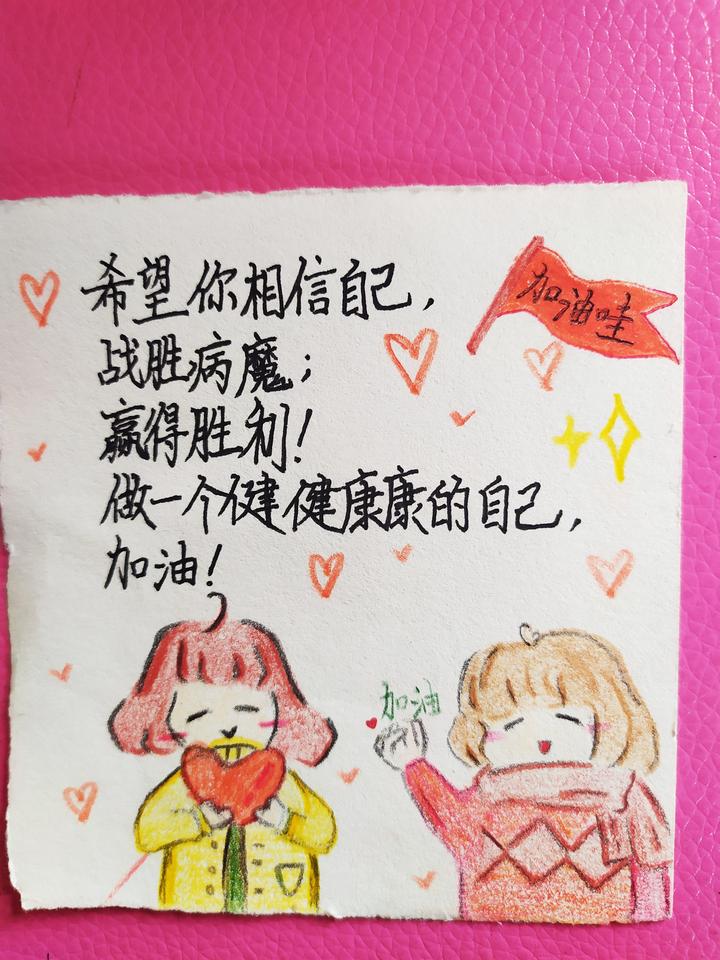 希望你相信自己，
加油哇
战胜病魔；
赢得胜利！
做一个健健康康的自己，
加油！
加油